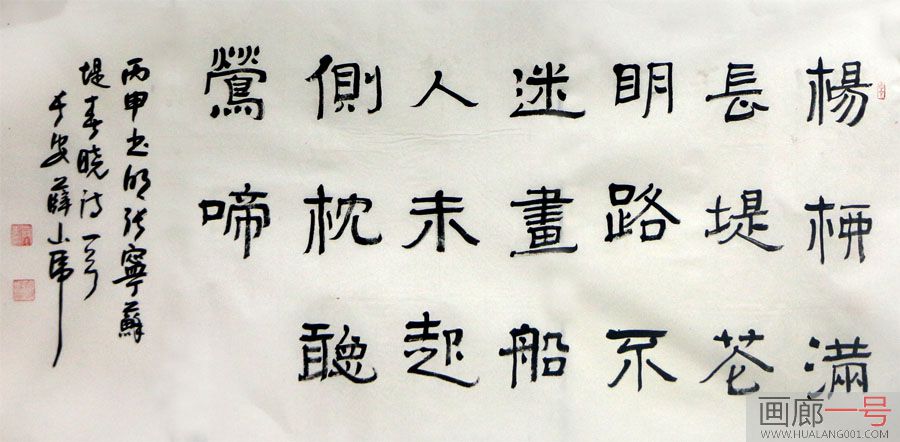 楊柳滿
長堤花
明路不
迷畫船
人未起
側枕聽
鶯啼
丙申书明张寧蘇
堤春晓诗一首
安薛
画廊一号
WWW.HUALANG001.COM